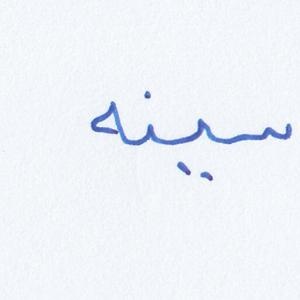 سینه